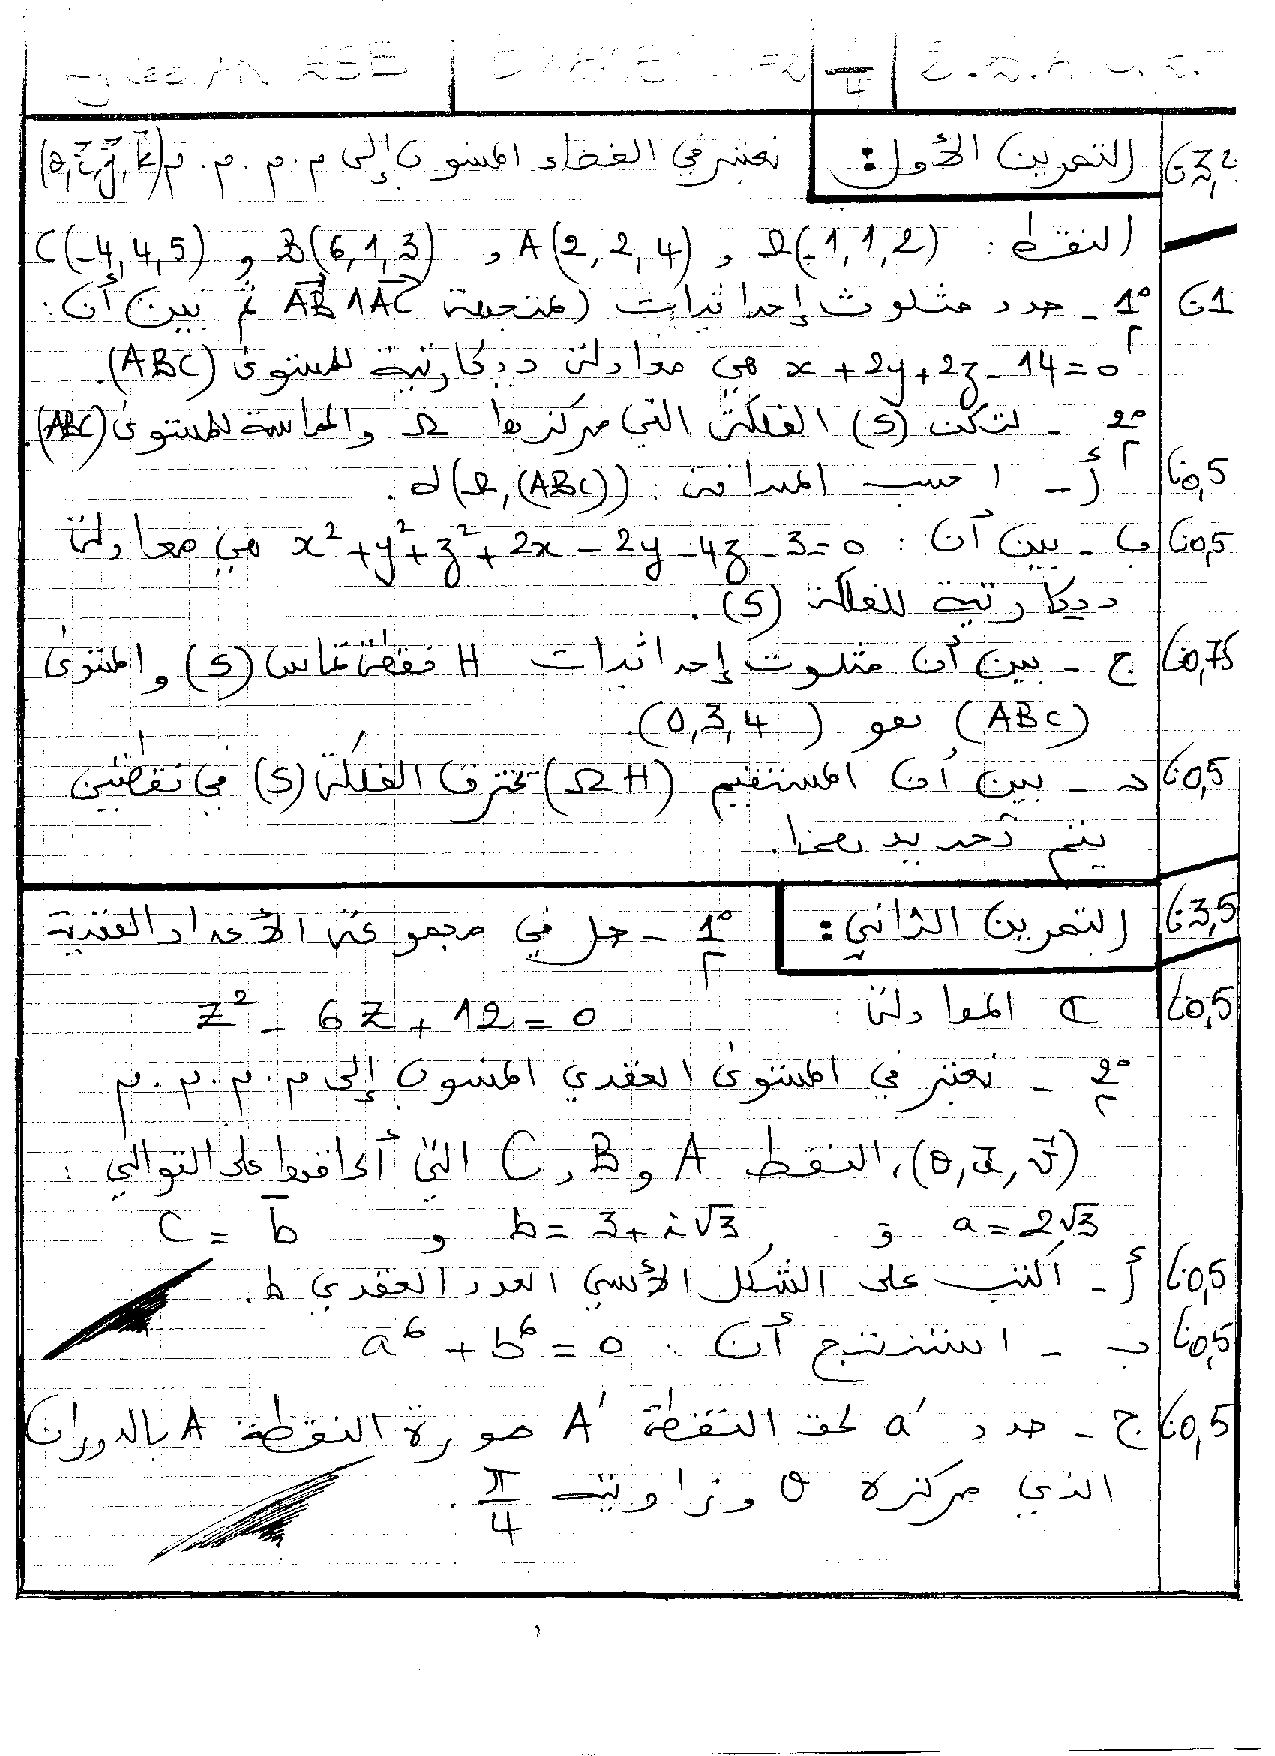 التمرين الأول: نعتبر في الفضاء المنسوب إلى م.م.م.م (O,i⃗,j⃗,k⃗)
النقط: Ω(-1,1,2) و A(2,2,4) و B(6,1,3) و C(-4,4,5)
ن1 1° - حدد مثلوث إحداثيات المتجهة AB⃗∧AC⃗ ثم بين أن:
x+2y+2z-14=0 هي معادلة ديكارتية للمستوى (ABC).
2° - لتكن (S) الفلكة التي مركزها Ω والمماسة للمستوى (ABC)
ن0,5 أ - احسب المسافة: d(Ω,(ABC)).
ن0,5 ب - بين أن: x²+y²+z²+2x-2y-4z-3=0 هي معادلة
ديكارتية للفلكة (S).
ن0,75 ج - بين أن مثلوث إحداثيات H نقطة تماس (S) والمستوى
(ABC) هو (0,3,4).
ن0,5 د - بين أن المستقيم (ΩH) يخترق الفلكة (S) في نقطتين
يتم تحديدهما.
ن3,5 التمرين الثاني: 1° - حل في مجموعة الأعداد العقدية
ن0,5 ℂ المعادلة: z² - 6z + 12 = 0
2° - نعتبر في المستوى العقدي المنسوب إلى م.م.م.م
(O,u⃗,v⃗)، النقط A و B و C التي ألحاقها على التوالي:
a=2√3 و b=3+i√3 و c=b̄
ن0,5 أ - اكتب على الشكل الأسي العدد العقدي b.
ن0,5 ب - استنتج أن: a⁶+b⁶=0
ن0,5 ج - حدد a' لحق النقطة A' صورة النقطة A بالدوران
الذي مركزه O وزاويته π/4.